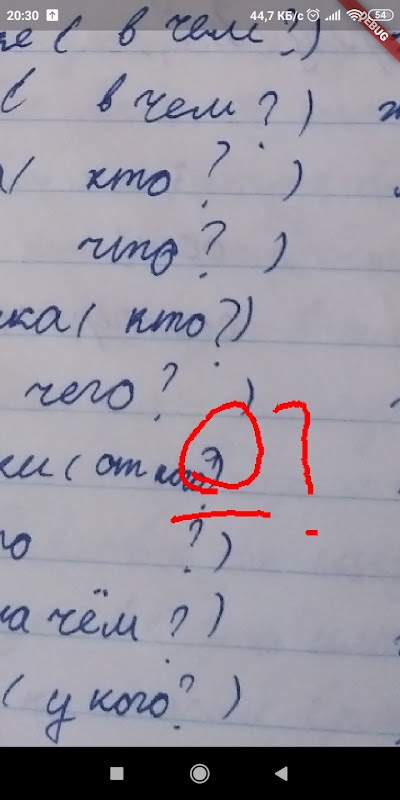 20:30 44,7 КБ/с 54
DEBUG
( в чем?)
( в чем?)
( кто?)
что?)
ка ( кто?)
чего?)
ки ( от ?)
?
го ?)
на чём?)
( у кого?)